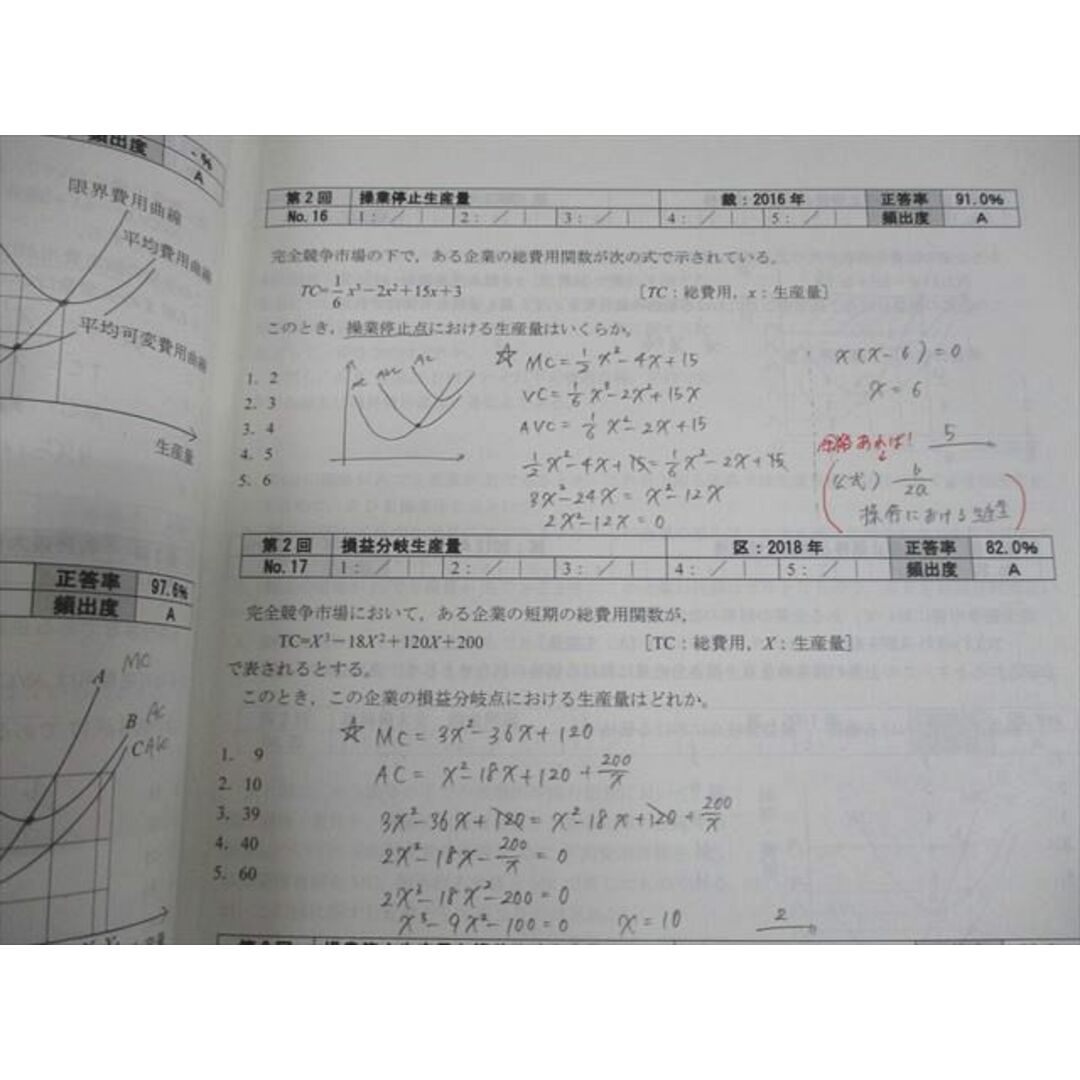 頻出度 -%
A
限界費用曲線
平均費用曲線
平均可変費用曲線
生産量
正答率 97.6%
頻出度 A
A MC
B AC
C AVC
第2回 操業停止生産量 裁：2016年 正答率 91.0%
No.16 1：／ 2：／ 3：／ 4：／ 5：／ 頻出度 A
完全競争市場の下で，ある企業の総費用関数が次の式で示されている。
TC=1/6x³－2x²+15x+3 ［TC：総費用，x：生産量］
このとき，操業停止点における生産量はいくらか。
1. 2
2. 3
3. 4
4. 5
5. 6
AVC AC
☆ MC = 1/2x² - 4x + 15
VC = 1/6x³ - 2x² + 15x
AVC = 1/6x² - 2x + 15
1/2x² - 4x + 15 = 1/6x² - 2x + 15
3x² - 24x = x² - 12x
2x² - 12x = 0
x(x-6) = 0
x = 6
5
あれば!
(公式) b/2a
における生産量
第2回 損益分岐生産量 区：2018年 正答率 82.0%
No.17 1：／ 2：／ 3：／ 4：／ 5：／ 頻出度 A
完全競争市場において，ある企業の短期の総費用関数が，
TC=X³－18X²＋120X＋200 ［TC：総費用，X：生産量］
で表されるとする。
このとき，この企業の損益分岐点における生産量はどれか。
1. 9
2. 10
3. 39
4. 40
5. 60
☆ MC = 3x² - 36x + 120
AC = x² - 18x + 120 + 200/x
3x² - 36x + 120 = x² - 18x + 120 + 200/x
2x² - 18x - 200/x = 0
2x³ - 18x² - 200 = 0
x³ - 9x² - 100 = 0 x = 10
2